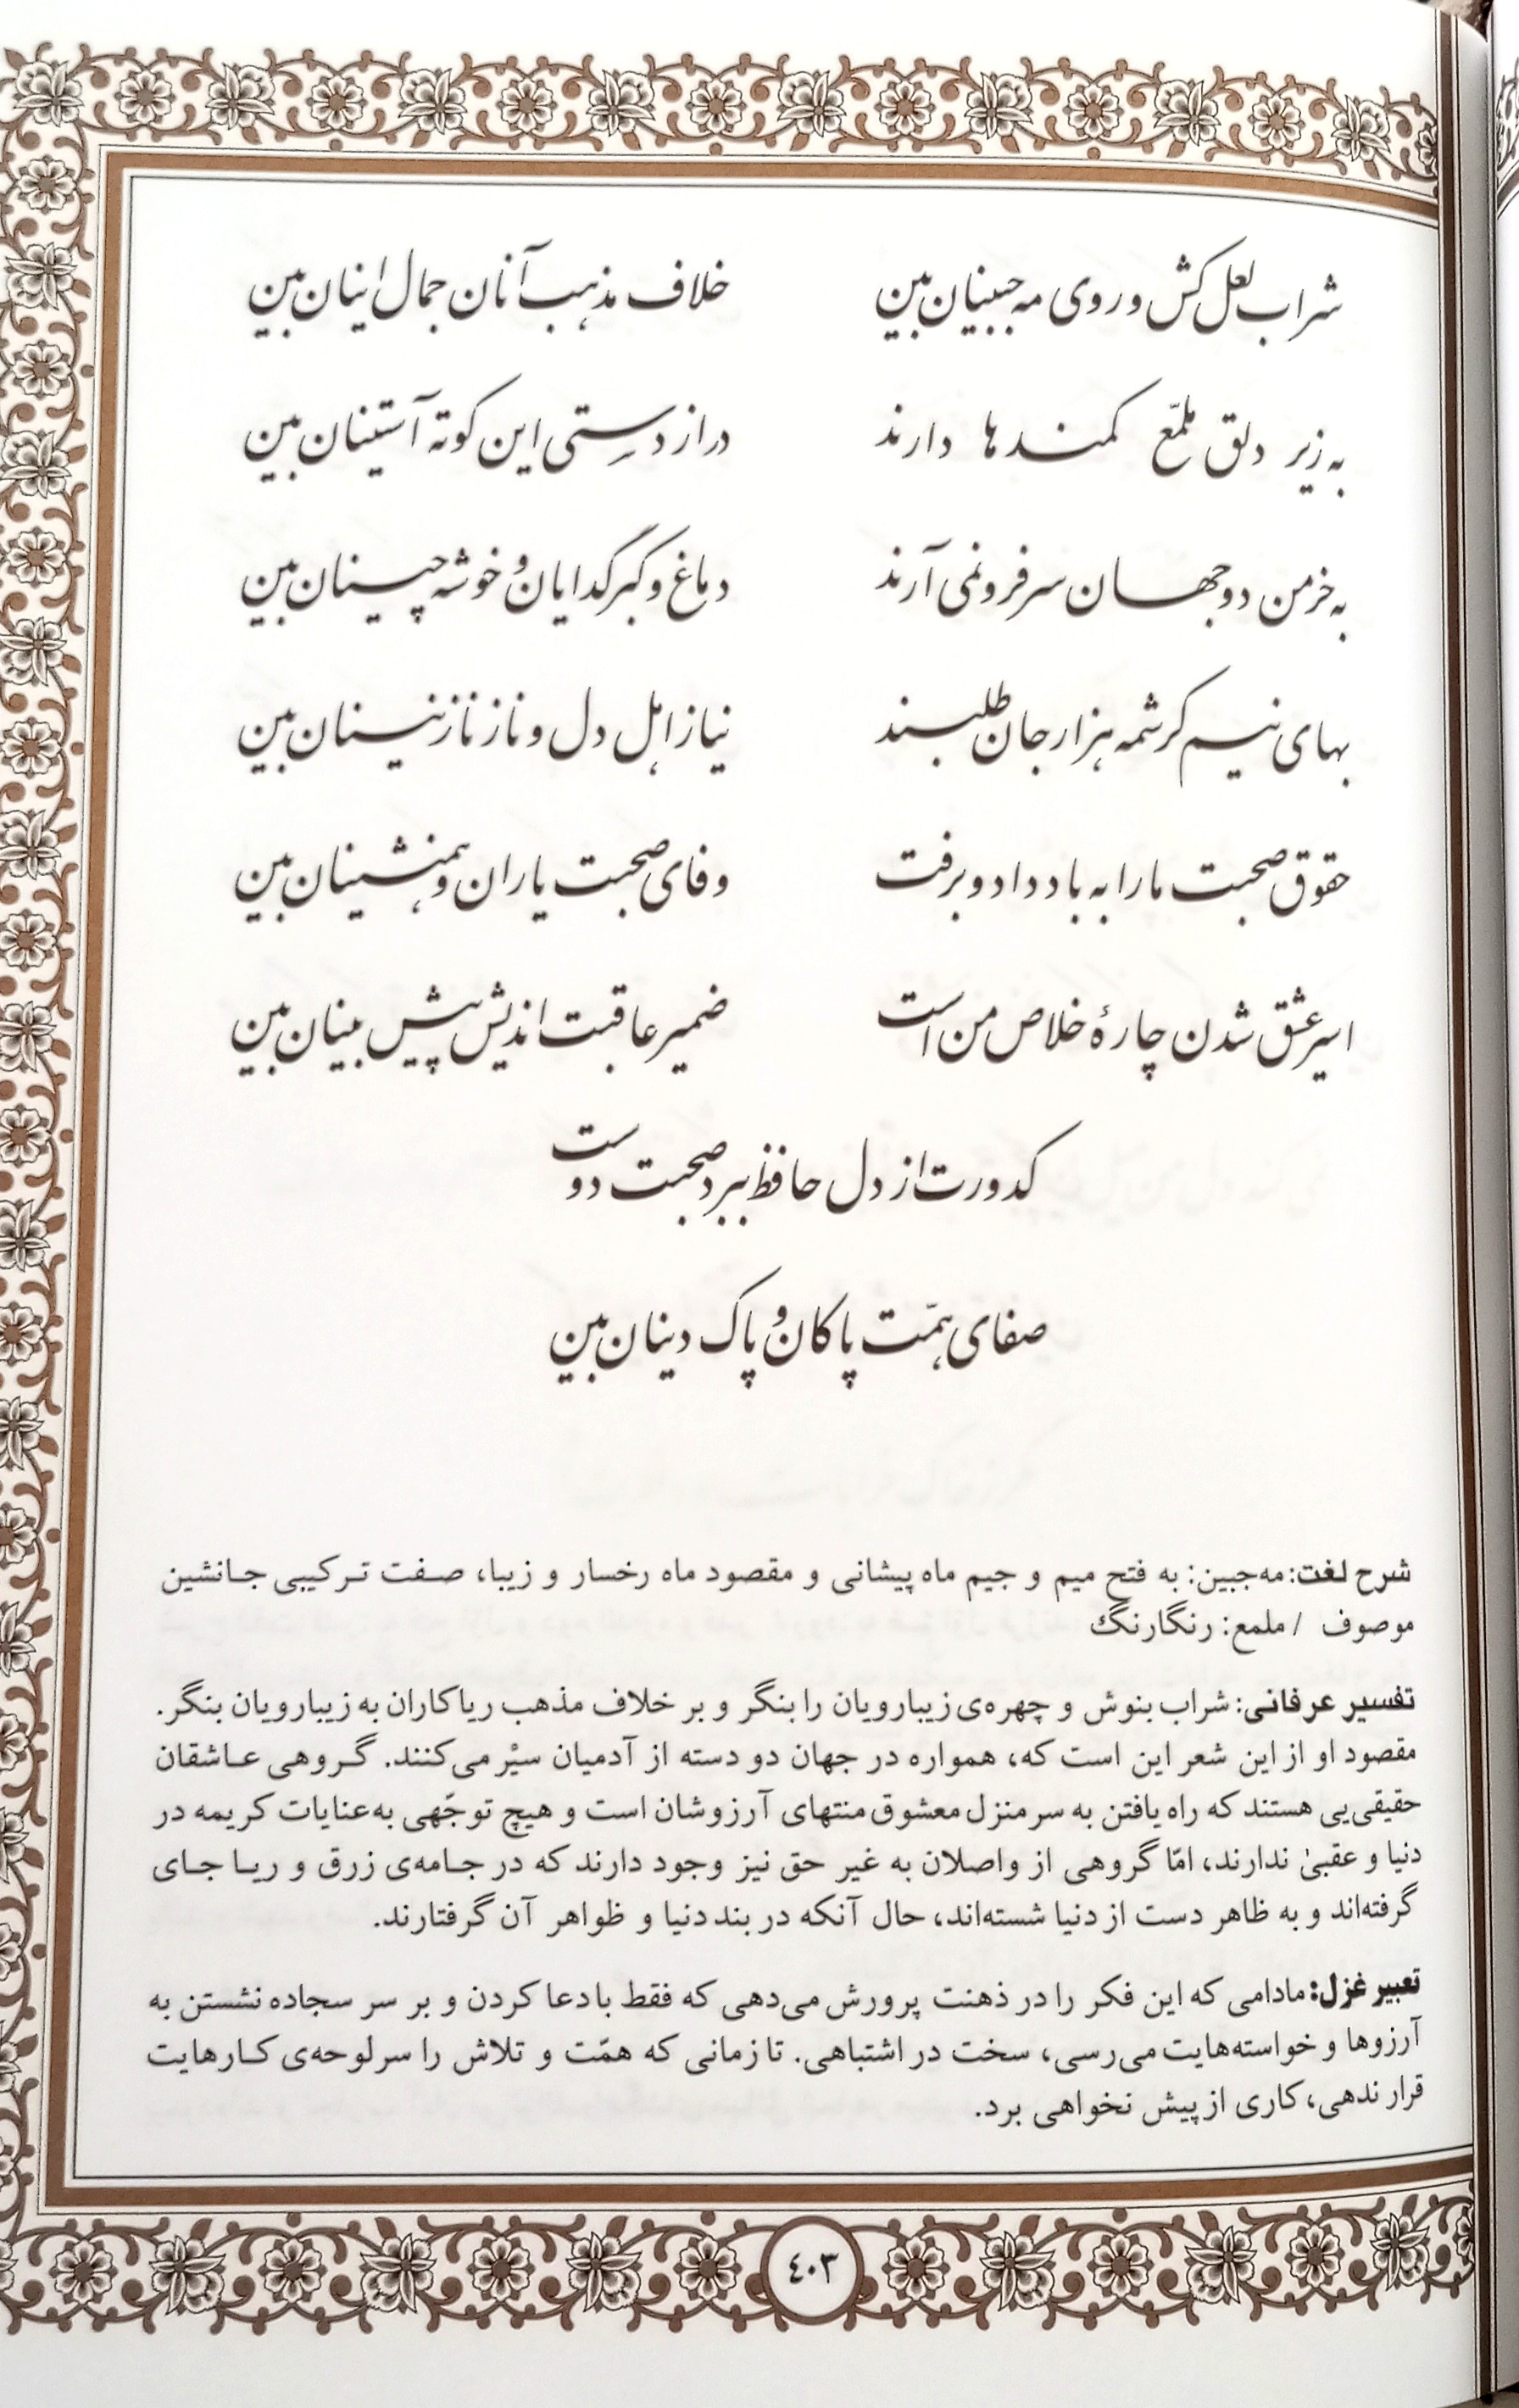 شراب لعل کش و روی مه جبینان بین
خلاف مذهب آنان جمال اینان بین
به زیر دلق ملمّع کمندها دارند
دراز دستی این کوته آستینان بین
به خرمن دو جهان سر فرو نمی آرند
دماغ و کبر گدایان و خوشه چینان بین
بهای نیم کرشمه هزار جان طلبند
نیاز اهل دل و ناز نازنینان بین
حقوق صحبت ما را به باد داد و برفت
وفای صحبت یاران و همنشینان بین
اسیر عشق شدن چارهٔ خلاص من است
ضمیر عاقبت اندیش پیش بینان بین
کدورت از دل حافظ ببرد صحبت دوست
صفای همّت پاکان و پاک دینان بین
شرح لغت: مه‌جبین: به فتح میم و جیم ماه پیشانی و مقصود ماه رخسار و زیبا، صفت ترکیبی جانشین
موصوف / ملمع: رنگارنگ
تفسیر عرفانی: شراب بنوش و چهره‌ی زیبارویان را بنگر و بر خلاف مذهب ریاکاران به زیبارویان بنگر.
مقصود او از این شعر این است که، همواره در جهان دو دسته از آدمیان سیْر می‌کنند. گروهی عاشقان
حقیقی‌یی هستند که راه یافتن به سر منزل معشوق منتهای آرزوشان است و هیچ توجّهی به عنایات کریمه در
دنیا و عقبیٰ ندارند، امّا گروهی از واصلان به غیر حق نیز وجود دارند که در جامه‌ی زرق و ریا جای
گرفته‌اند و به ظاهر دست از دنیا شسته‌اند، حال آنکه در بند دنیا و ظواهر آن گرفتارند.
تعبیر غزل: مادامی که این فکر را در ذهنت پرورش می‌دهی که فقط با دعا کردن و بر سر سجاده نشستن به
آرزوها و خواسته‌هایت می‌رسی، سخت در اشتباهی. تا زمانی که همّت و تلاش را سرلوحه‌ی کارهایت
قرار ندهی، کاری از پیش نخواهی برد.
٤٠٣